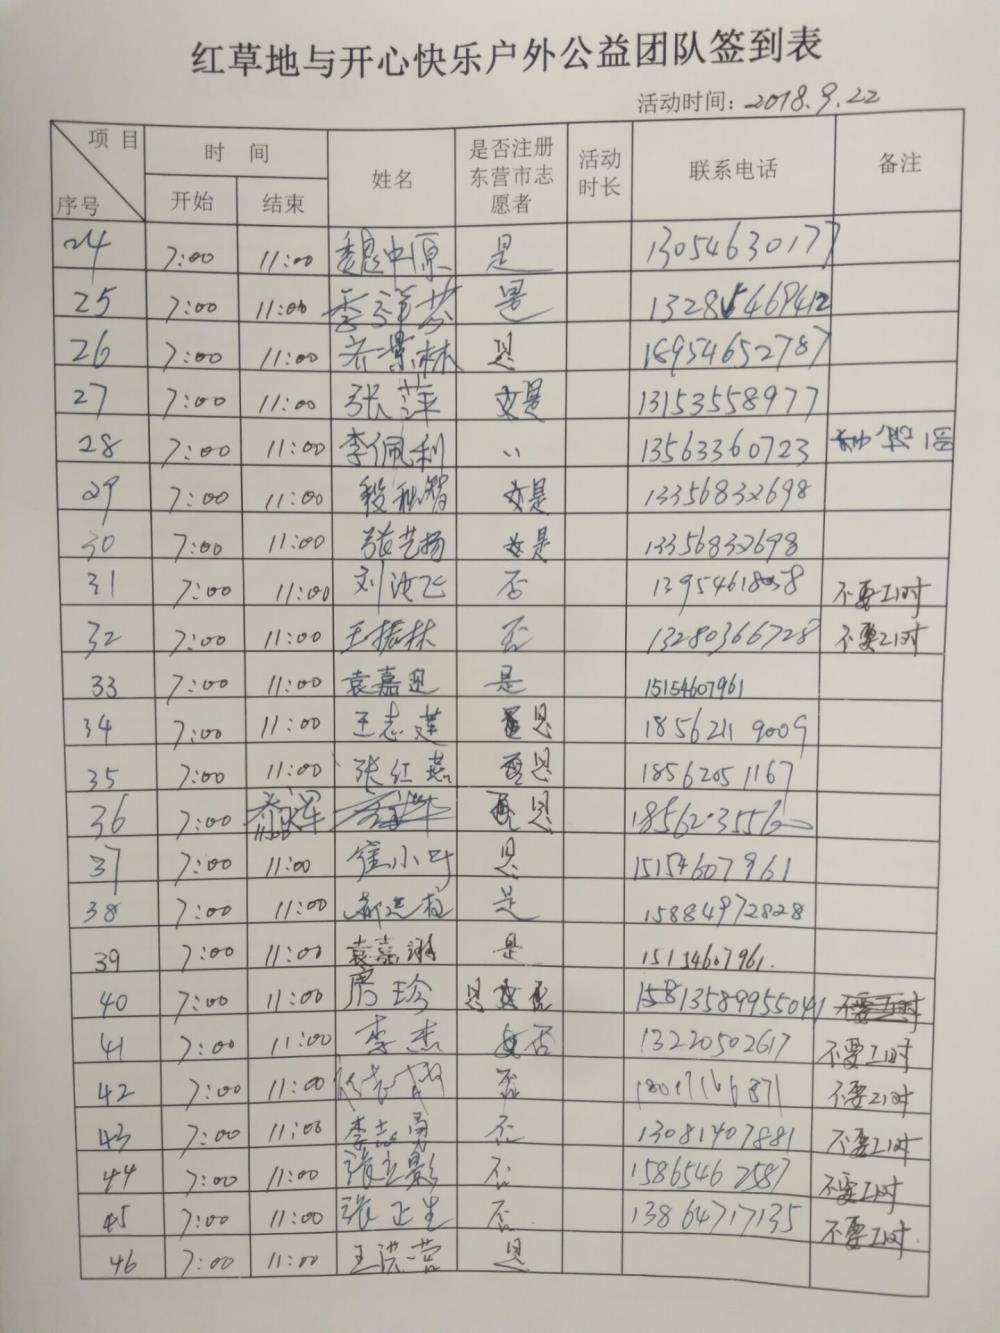 红草地与开心快乐户外公益团队签到表
活动时间：2018.9.22
项目 序号 时间 开始 结束 姓名 是否注册东营市志愿者 活动时长 联系电话 备注
24 7:00 11:00 魏中原 是 13054630177
25 7:00 11:00 李祥芬 是 13285469412
26 7:00 11:00 齐景林 是 18954652787
27 7:00 11:00 张萍 女是 13153558977
28 7:00 11:00 李佩利 〃 13563360723
29 7:00 11:00 段秋智 女是 13356832698
30 7:00 11:00 张艺扬 女是 13356832698
31 7:00 11:00 刘汝飞 否 不要工时
32 7:00 11:00 王振林 否 13280366728 不要工时
33 7:00 11:00 袁嘉迅 是 15154607961
34 7:00 11:00 王志莲 是 18562119009
35 7:00 11:00 张红燕 是 18562051167
36 7:00 11:00 是
37 7:00 11:00 崔小叶 是 15154607961
38 7:00 11:00 是 15884972828
39 7:00 11:00 袁嘉 是 15154607961.
40 7:00 11:00 珍 是 不要工时
41 7:00 11:00 李杰 女否 13220502617 不要工时
42 7:00 11:00 否 不要工时
43 7:00 11:00 李志勇 否 13081407881 不要工时
44 7:00 11:00 张立影 否 15865462587 不要工时
45 7:00 11:00 张正生 否. 13864717135 不要工时.
46 7:00 11:00 王洪营 是